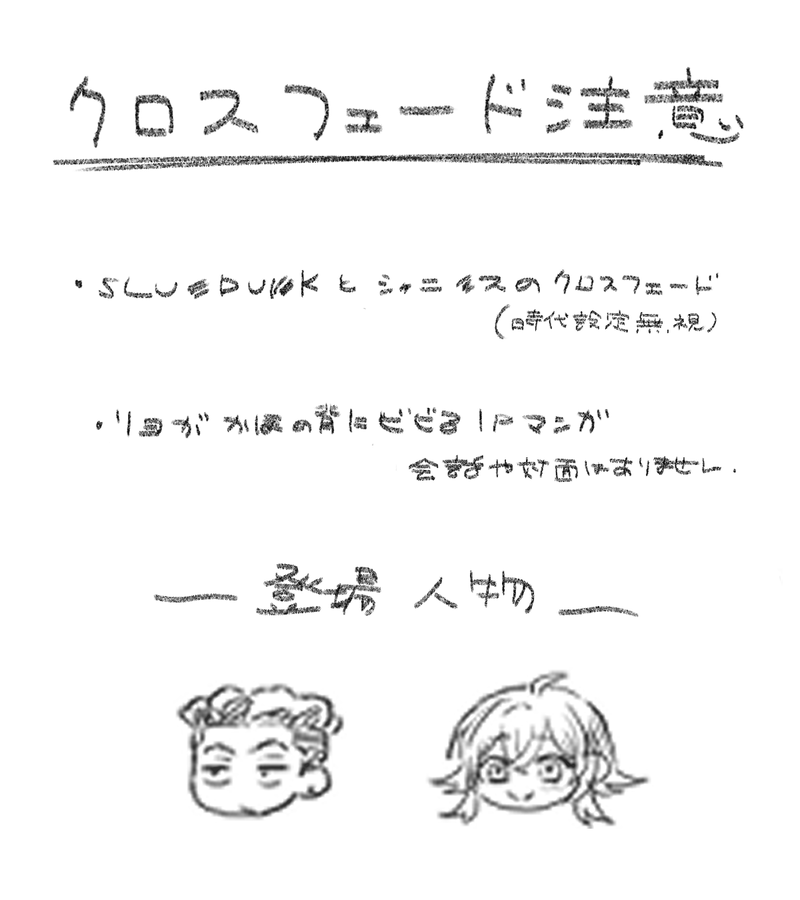 クロスフェード注意
・SLU■DU■Kとシャニ■スのクロスフェード
(時代設定無視)
・リョ■が か■の背にビビる1Pマンガ
会話や対面はありません.
登場人物